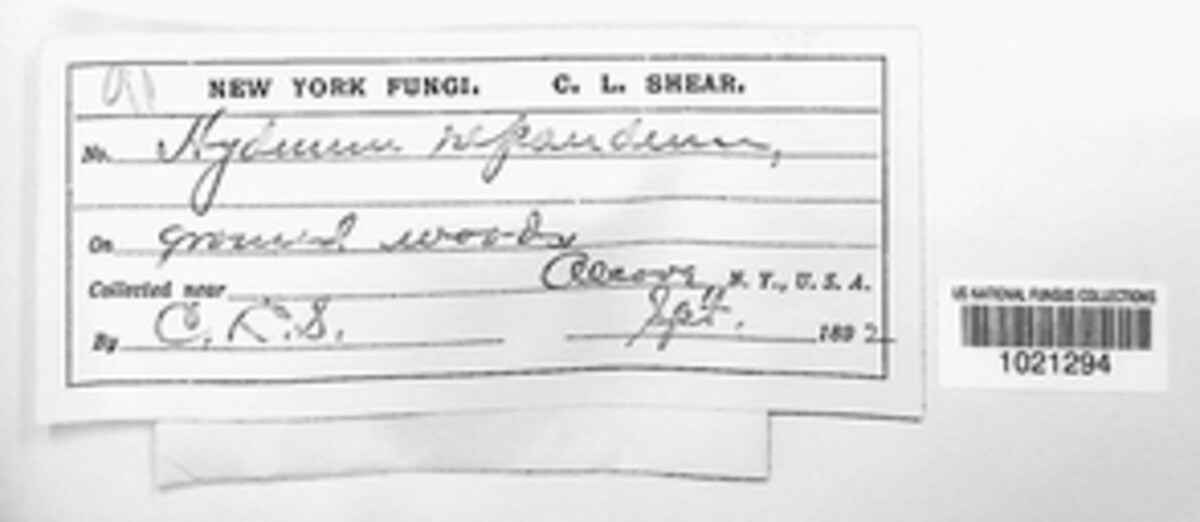 NEW YORK FUNGI. C. L. SHEAR.
No. Hydnum repandum,
On ground woods
Collected near Alcove, N. Y., U. S. A.
By C. L. S. Sept. 1892
US NATIONAL FUNGUS COLLECTIONS
1021294